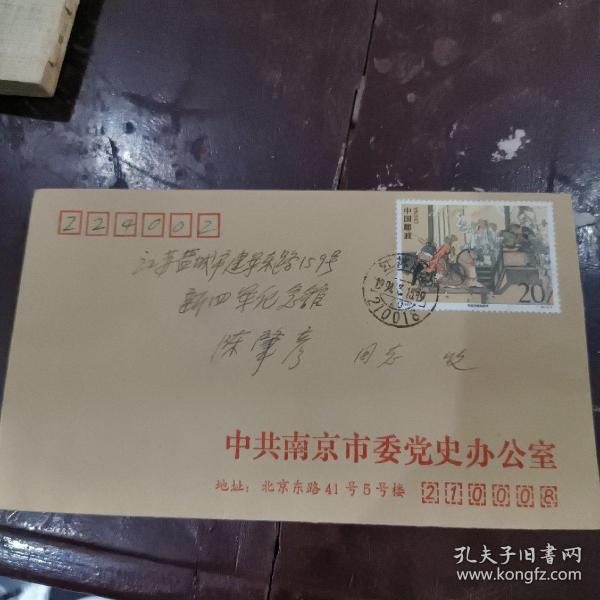 224002
中国邮政
江苏盐城市建军东路159号
新四军纪念馆
20分
210018
陈肇彦 同志 收
中共南京市委党史办公室
地址：北京东路41号5号楼 210008
孔夫子旧书网
www.kongfz.com